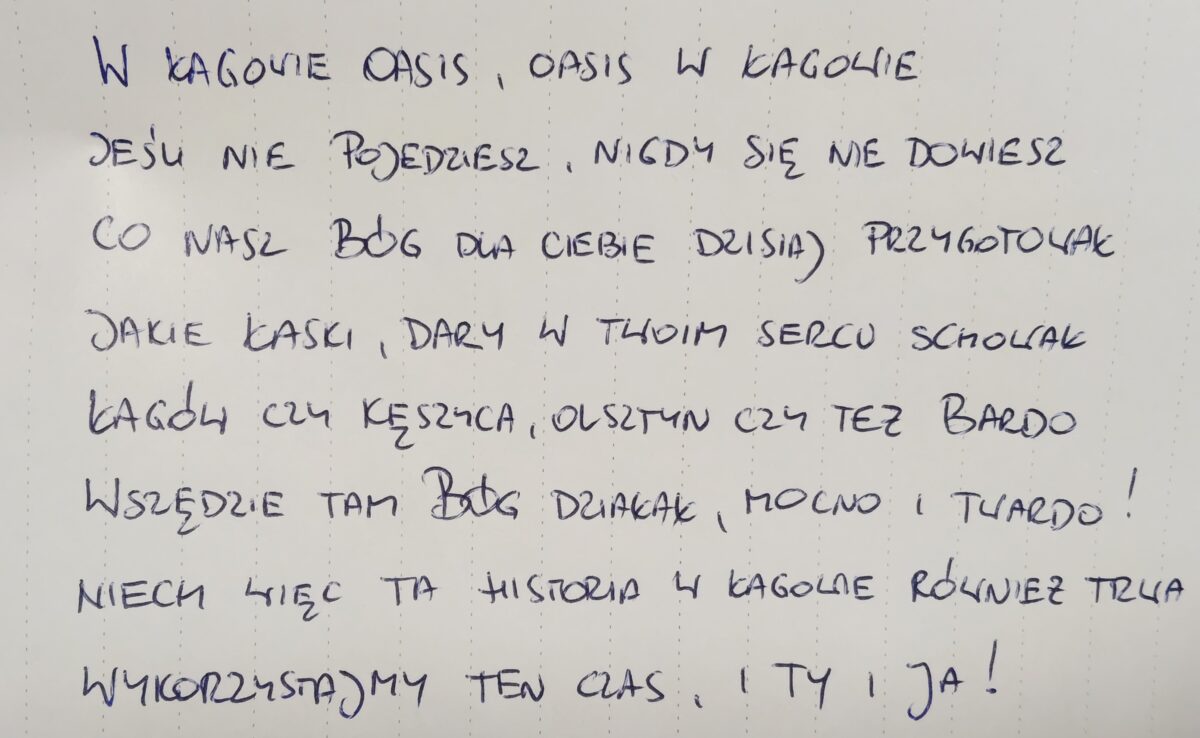 W ŁAGOWIE OASIS, OASIS W ŁAGOWIE
JEŚLI NIE POJEDZIESZ, NIGDY SIĘ NIE DOWIESZ
CO NASZ BÓG DLA CIEBIE DZISIAJ PRZYGOTOWAŁ
JAKIE ŁASKI, DARY W TWOIM SERCU SCHOWAŁ
ŁAGÓW CZY KĘSZYCA, OLSZTYN CZY TEŻ BARDO
WSZĘDZIE TAM BÓG DZIAŁAŁ, MOCNO I TWARDO!
NIECH WIĘC TA HISTORIA W ŁAGOWIE RÓWNIEŻ TRWA
WYKORZYSTAJMY TEN CZAS, I TY I JA!